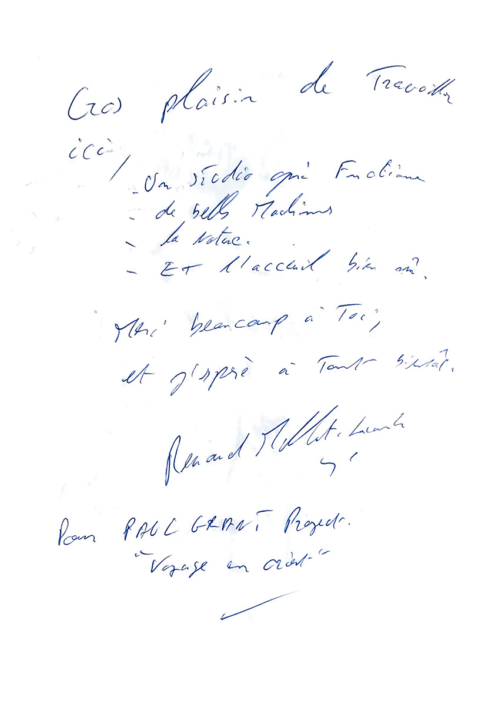 Gros plaisir de Travailler
ici,
- Un studio qui Fonctionne
- de belles Machines
- la Nature.
- ET l'acceuil bien sûr.
Merci beaucoup à Toi,
et j'espère à Tout bientôt.
Renaud Millet-Lacombe
Pour PAUL GRANT Project.
"Voyage en orient"